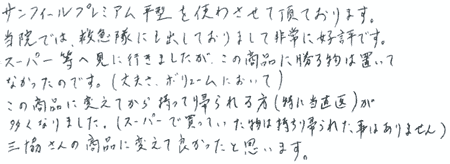 サンフィールプレミアム平型を使わさせて頂ております。
当院では、救急隊にも出しておりまして非常に好評です。
スーパー等へ見に行きましたが、この商品に勝る物は置いて
なかったのです。(丈夫さ、ボリュームにおいて)
この商品に変えてから持って帰られる方(特に当直医)が
多くなりました。(スーパーで買っていた物は持ち帰られた事はありません)
三協さんの商品に変えて良かったと思います。